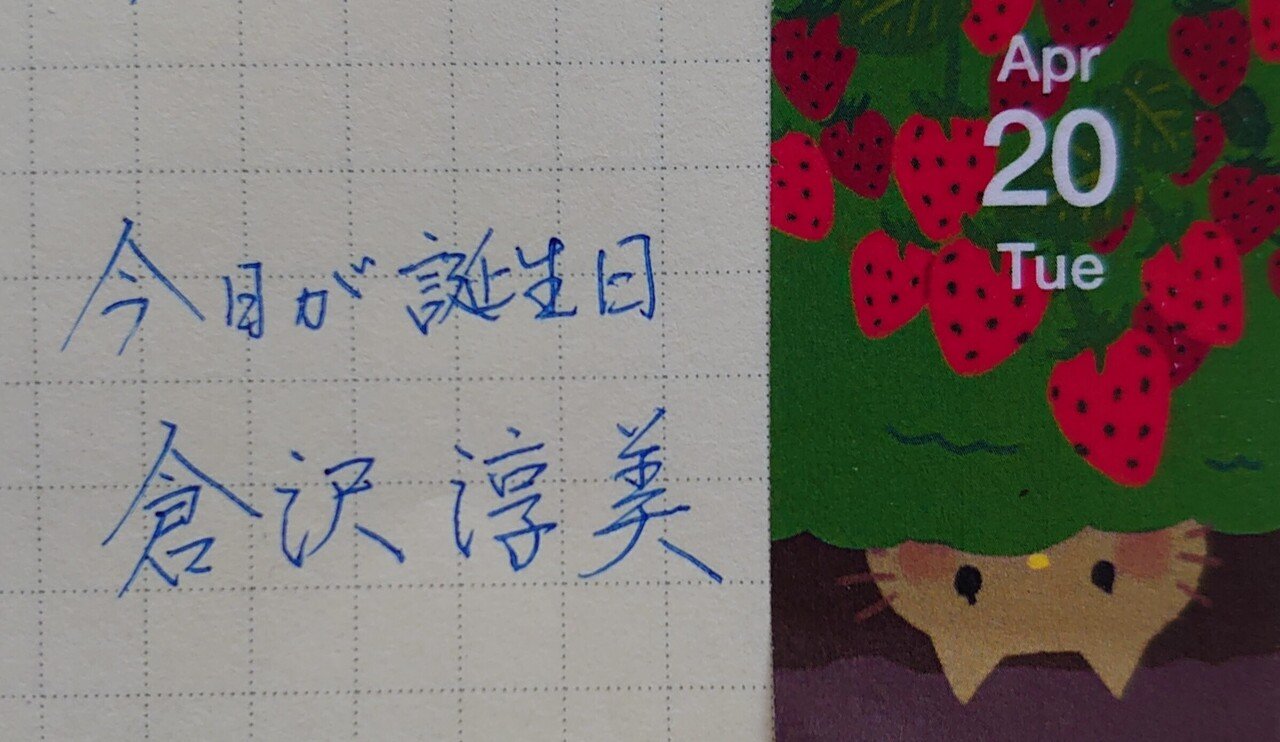 今日が誕生日
倉沢淳美
Apr
20
Tue